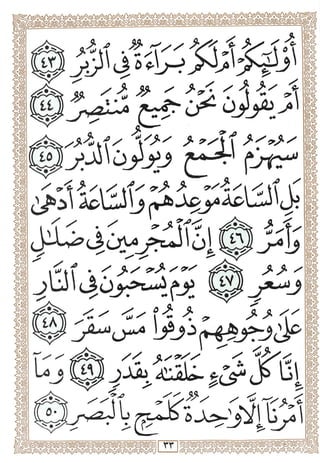 أُوْلَـٰٓئِكُمْ أَمْ لَكُم بَرَآءَةٌ فِى ٱلزُّبُرِ ٤٣
أَمْ يَقُولُونَ نَحْنُ جَمِيعٌ مُّنتَصِرٌ ٤٤
سَيُهْزَمُ ٱلْجَمْعُ وَيُوَلُّونَ ٱلدُّبُرَ ٤٥
بَلِ ٱلسَّاعَةُ مَوْعِدُهُمْ وَٱلسَّاعَةُ أَدْهَىٰ
وَأَمَرُّ ٤٦ إِنَّ ٱلْمُجْرِمِينَ فِى ضَلَـٰلٍ
وَسُعُرٍ ٤٧ يَوْمَ يُسْحَبُونَ فِى ٱلنَّارِ
عَلَىٰ وُجُوهِهِمْ ذُوقُوا۟ مَسَّ سَقَرَ ٤٨
إِنَّا كُلَّ شَىْءٍ خَلَقْنَـٰهُ بِقَدَرٍ ٤٩ وَمَآ
أَمْرُنَآ إِلَّا وَٰحِدَةٌ كَلَمْحٍۭ بِٱلْبَصَرِ ٥٠
٣٣